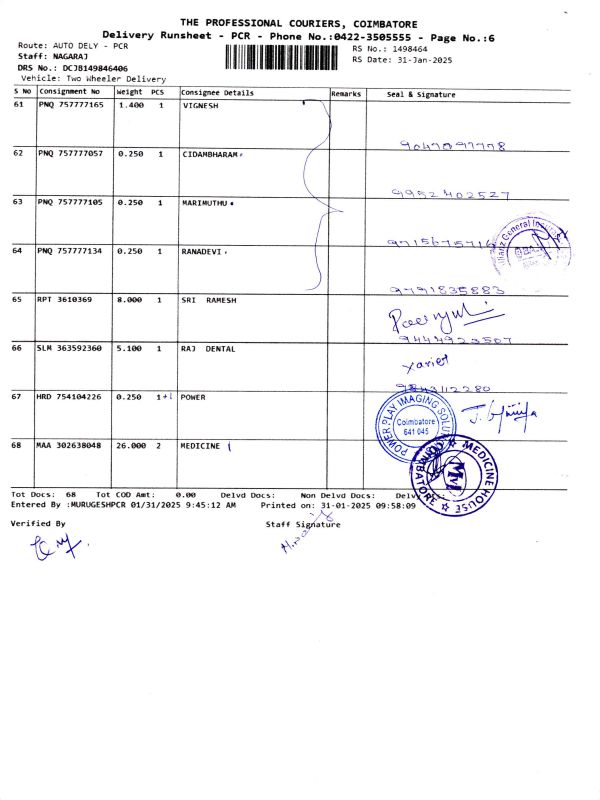 THE PROFESSIONAL COURIERS, COIMBATORE
Delivery Runsheet - PCR - Phone No.:0422-3505555 - Page No.:6
Route: AUTO DELY - PCR
Staff: NAGARAJ
DRS No.: DCJB149846406
Vehicle: Two Wheeler Delivery
RS No.: 1498464
RS Date: 31-Jan-2025
S No Consignment No Weight PCS Consignee Details Remarks Seal & Signature
61 PNQ 757777165 1.400 1 VIGNESH
62 PNQ 757777057 0.250 1 CIDAMBHARAM
9952402527
63 PNQ 757777105 0.250 1 MARIMUTHU
General Insu
64 PNQ 757777134 0.250 1 RANADEVI
9791835883
65 RPT 3610369 8.000 1 SRI RAMESH
9444923507
66 SLM 363592360 5.100 1 RAJ DENTAL
xavier
9843112280
67 HRD 754104226 0.250 1+1 POWER
POWER PLAY IMAGING SOLU
Coimbatore
641 045
68 MAA 302638048 26.000 2 MEDICINE
MEDICINE HOUSE
MM
Tot Docs: 68 Tot COD Amt: 0.00 Delvd Docs: Non Delvd Docs: Delv
Entered By :MURUGESHPCR 01/31/2025 9:45:12 AM Printed on: 31-01-2025 09:58:09
Verified By Staff Signature